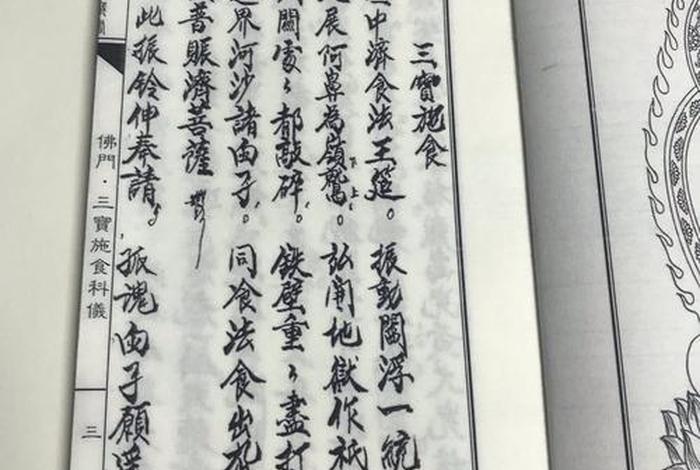 三寶施食
中濟食法王筵。振動閻浮一統
展何鼻為嶺鷲。開地獄作祇
關處々都敲碎。鉄壁重々盡打
界河沙諸甶子。同飡法食出
普賑濟菩薩
此振鈴伸奉請。孤魂甶子願
佛門·三寶施食科儀
三